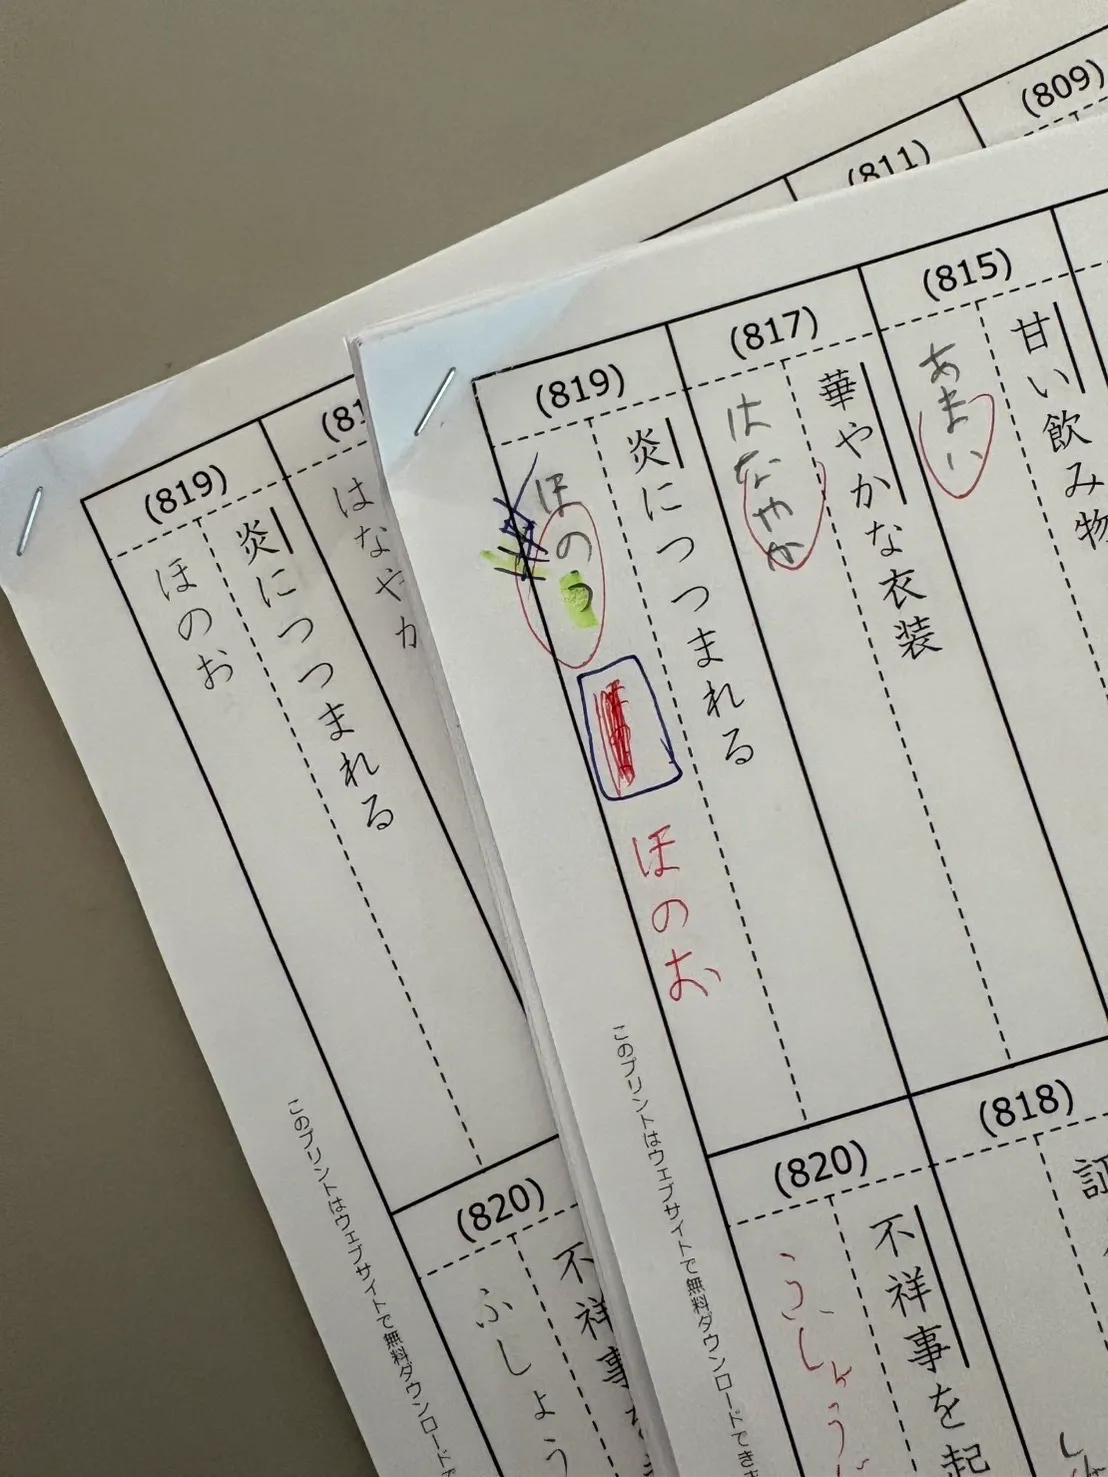 (809)
(811)
(815)
甘い飲み物
あまい
(817)
華やかな衣装
はなやか
(819)
炎につつまれる
ほのう
ほのお
(818)
証
(820)
不祥事を起
ふしょう
このプリントはウェブサイトで無料ダウンロードできま
(81
はなやか
(819)
炎につつまれる
ほのお
(820)
不祥事を
ふしょう
このプリントはウェブサイトで無料ダウンロードで